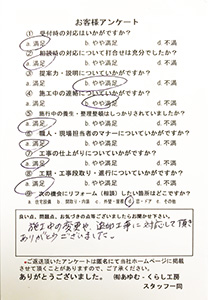 お客様アンケート
① 受付時の対応はいかがですか？
a. 満足 b. やや満足 d. 不満
② 相談時の対応について打合せは充分でしたか？
a. 満足 b. やや満足 d. 不満
③ 提案力・説明についていかがですか？
a. 満足 b. やや満足 d. 不満
④ 施工中の連絡についていかがですか？
a. 満足 b. やや満足 d. 不満
⑤ 施行中の養生・整理整頓はしっかりされていましたか？
a. 満足 b. やや満足 d. 不満
⑥ 職人・現場担当者のマナーについていかがですか？
a. 満足 b. やや満足 d. 不満
⑦ 工事の仕上がりについていかがですか？
a. 満足 b. やや満足 d. 不満
⑧ 工期・工事段取り・進行についていかがですか？
a. 満足 b. やや満足 d. 不満
⑨ 次の機会にリフォーム（相談）したい箇所はどこですか？
a. 住宅設備 b. 間取り・内装 c. 外壁・屋根 d. 窓・ドア e. その他
良い点、問題点、お気づきの点等ございましたらお聞かせ下さい。
施工中の変更や、追加工事に対応して頂き
ありがとうございました。
○ご返送頂いたアンケートは匿名にて当社ホームページに掲載
させて頂くことがありますので、ご了承くださいませ。
ありがとうございました。 ㈱あゆむ・くらし工房
スタッフ一同